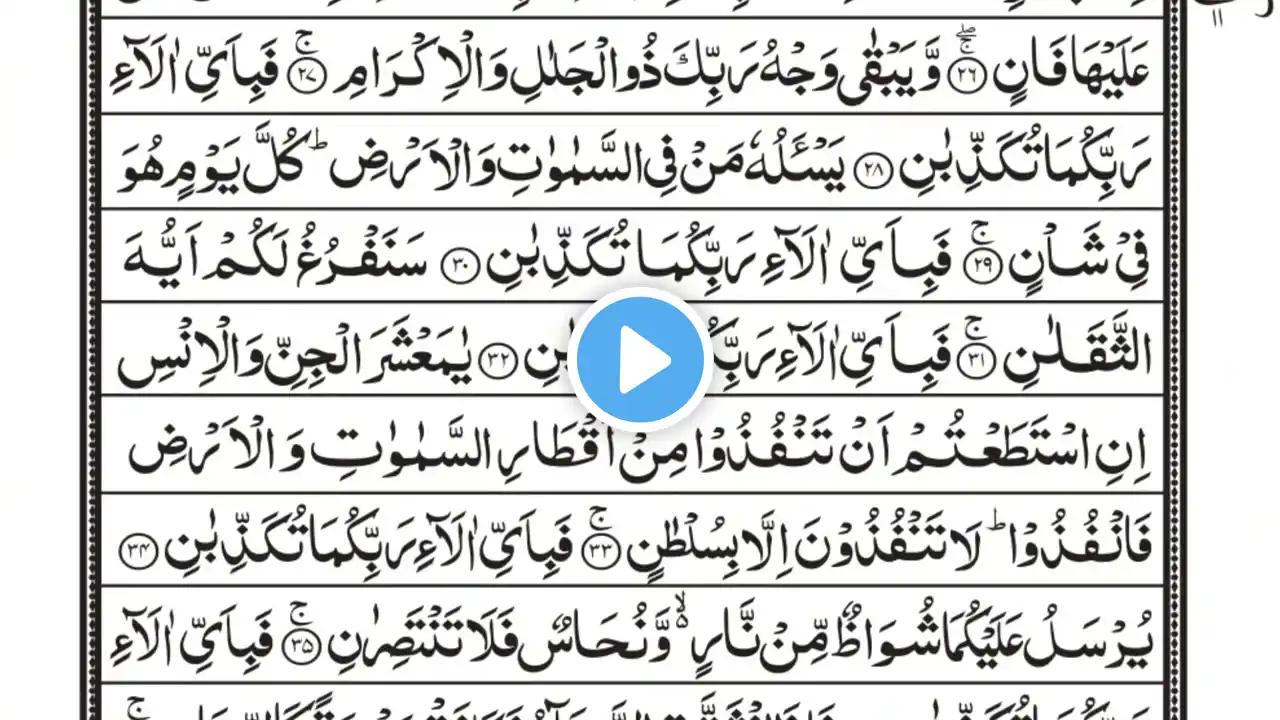 عَلَيْهَا فَانٍ ۚۖ ﴿۲۶﴾ وَّيَبْقٰى وَجْهُ رَبِّكَ ذُو الْجَلٰلِ وَالْاِكْرَامِ ۚ ﴿۲۷﴾ فَبِاَيِّ اٰلَآءِ
رَبِّكُمَا تُكَذِّبٰنِ ﴿۲۸﴾ يَسْـَٔلُهٗ مَنْ فِي السَّمٰوٰتِ وَالْاَرْضِ ؕ كُلَّ يَوْمٍ هُوَ
فِيْ شَاْنٍ ۚ ﴿۲۹﴾ فَبِاَيِّ اٰلَآءِ رَبِّكُمَا تُكَذِّبٰنِ ﴿۳۰﴾ سَنَفْرُغُ لَكُمْ اَيُّهَ
الثَّقَلٰنِ ۚ ﴿۳۱﴾ فَبِاَيِّ اٰلَآءِ ﴿۳۲﴾ يٰمَعْشَرَ الْجِنِّ وَالْاِنْسِ
اِنِ اسْتَطَعْتُمْ اَنْ تَنْفُذُوْا مِنْ اَقْطَارِ السَّمٰوٰتِ وَالْاَرْضِ
فَانْفُذُوْا ؕ لَا تَنْفُذُوْنَ اِلَّا بِسُلْطٰنٍ ۚ ﴿۳۳﴾ فَبِاَيِّ اٰلَآءِ رَبِّكُمَا تُكَذِّبٰنِ ﴿۳۴﴾
يُرْسَلُ عَلَيْكُمَا شُوَاظٌ مِّنْ نَّارٍ ۙ۬ وَّنُحَاسٌ فَلَا تَنْتَصِرٰنِ ۚ ﴿۳۵﴾ فَبِاَيِّ اٰلَآءِ